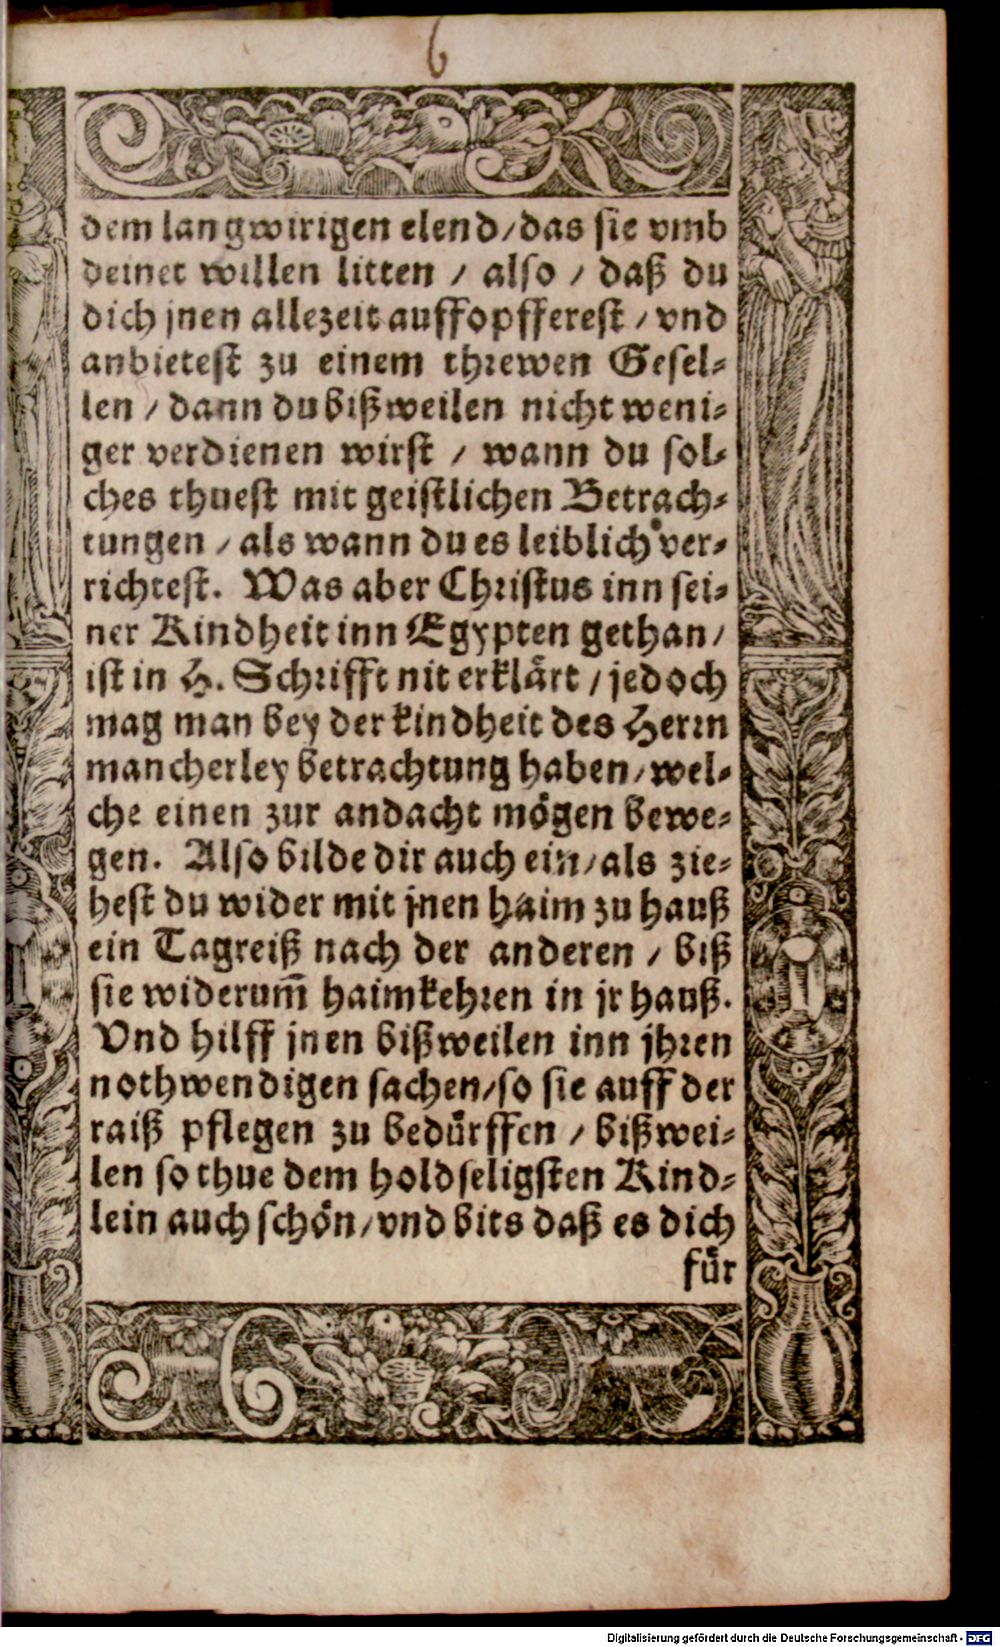 6
dem langwirigen elend/das sie vmb
deinet willen litten / also / daß du
dich jnen allezeit auffopfferest / vnd
anbietest zu einem threwen Gesel-
len / dann du bißweilen nicht weni-
ger verdienen wirst / wann du sol-
ches thuest mit geistlichen Betrach-
tungen / als wann du es leiblich ver-
richtest. Was aber Christus inn sei-
ner Kindheit inn Egypten gethan/
ist in H. Schrifft nit erklärt / jedoch
mag man bey der kindheit des Herrn
mancherley betrachtung haben/wel-
che einen zur andacht mögen bewe-
gen. Also bilde dir auch ein/als zie-
hest du wider mit jnen haim zu hauß
ein Tagreiß nach der anderen / biß
sie widerum̃ haimkehren in jr hauß.
Vnd hilff jnen bißweilen inn jhren
nothwendigen sachen/so sie auff der
raiß pflegen zu bedürffen / bißwei-
len so thue dem holdseligsten Kind-
lein auch schön/vnd bits daß es dich
für
Digitalisierung gefördert durch die Deutsche Forschungsgemeinschaft - DFG